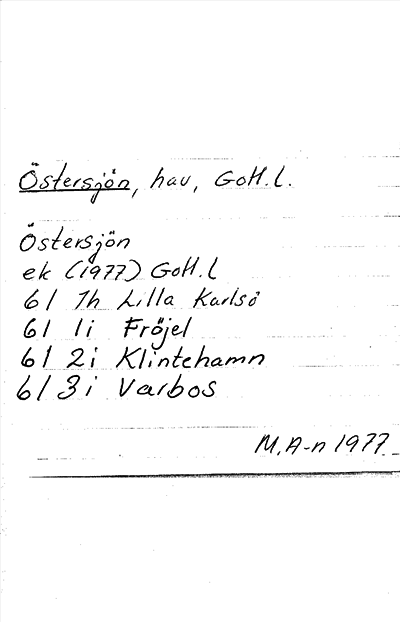 Östersjön, hav, Gotl.l.
Östersjön
ek (1977) Gotl.l
6I 1h Lilla Karlsö
6I 1i Fröjel
6I 2i Klintehamn
6I 3i Varbos
M.A-n 1977